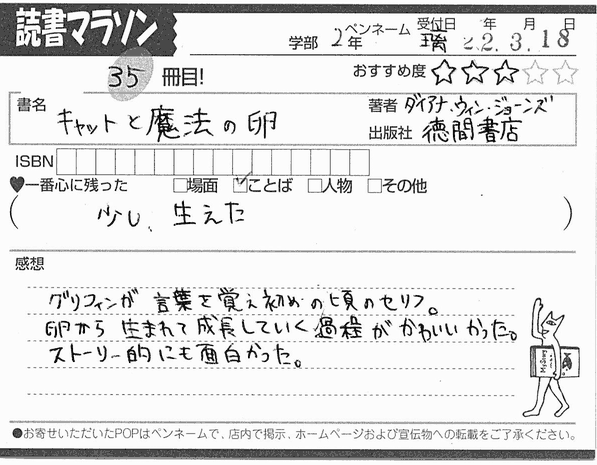 読書マラソン
学部 2年 ペンネーム 受付日 年 月 日
22.3.18
35 冊目!
おすすめ度 ★★★☆☆
書名
キャットと魔法の卵
著者 ダイアナ・ウィン・ジョーンズ
出版社 徳間書店
ISBN
♥一番心に残った □場面 ☑ことば □人物 □その他
( 少し、生えた )
感想
グリフィンが言葉を覚え初めの頃のセリフ。
卵から生まれて成長していく過程がかわいいかった。
ストーリー的にも面白かった。
●お寄せいただいたPOPはペンネームで、店内で掲示、ホームページおよび宣伝物への転載をご了承ください。